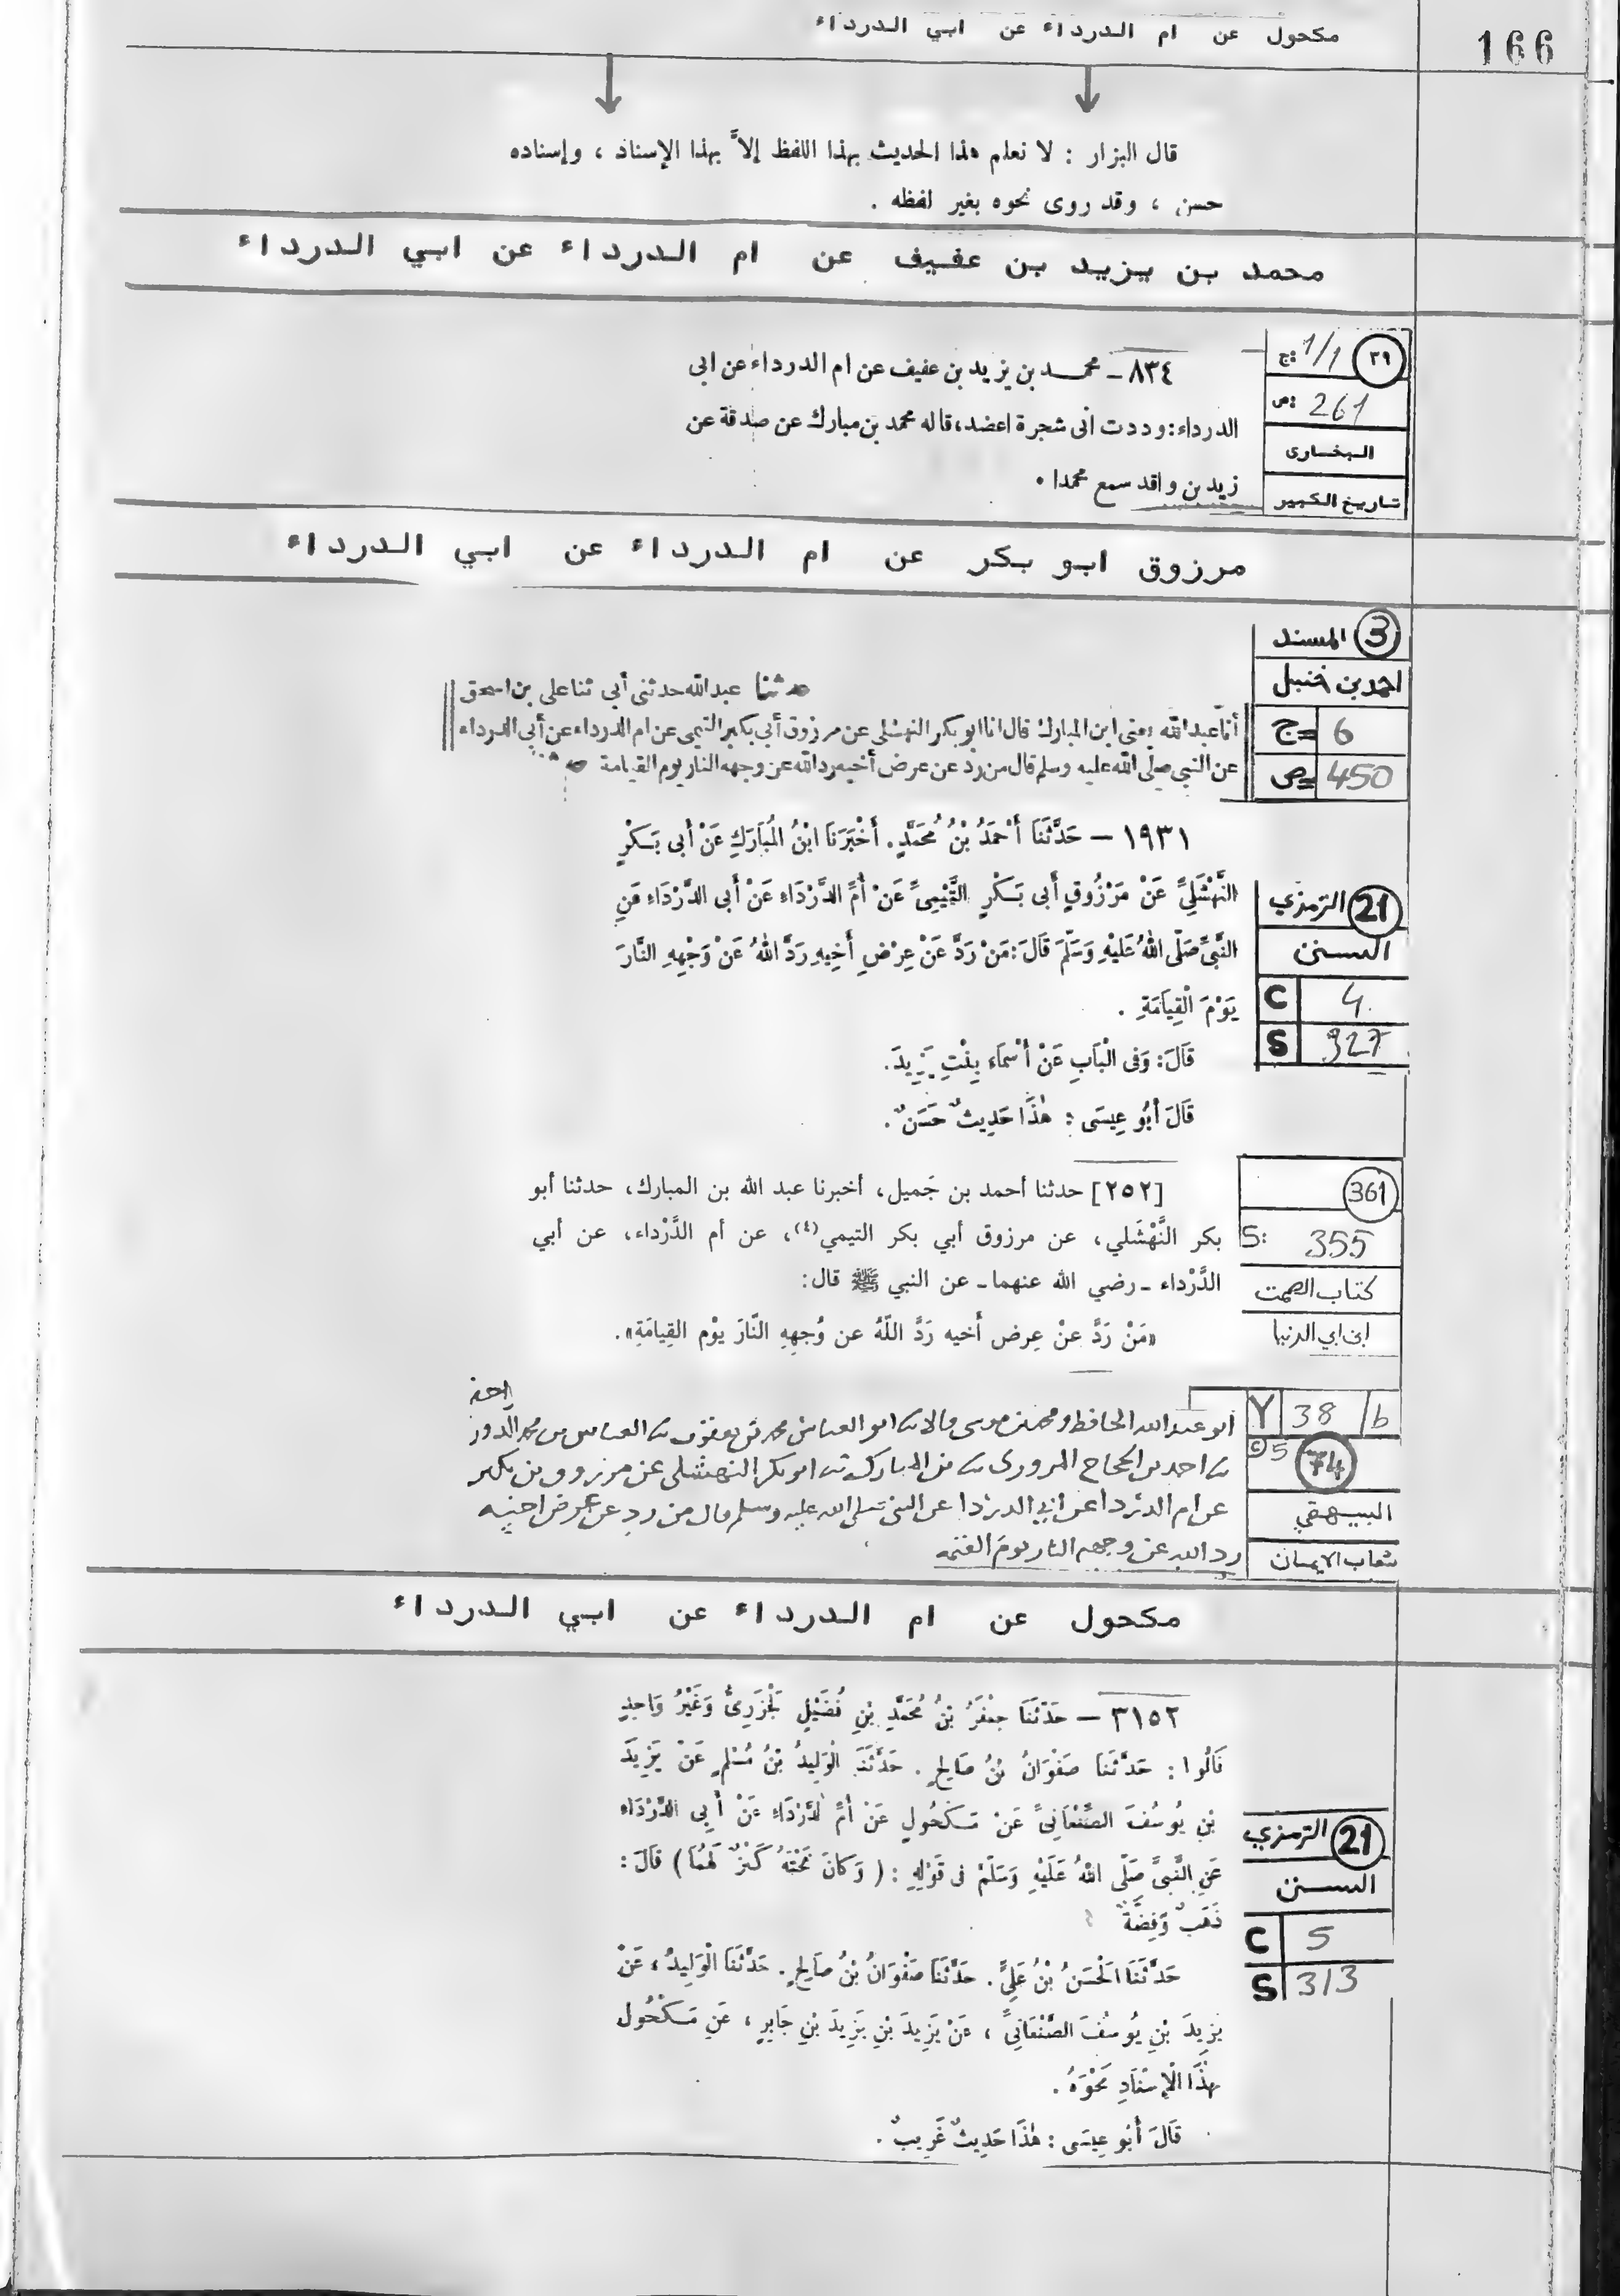 مكحول عن ام الدرداء عن ابي الدرداء
166
قال البزار : لا نعلم هذا الحديث بهذا اللفظ إلاَّ بهذا الإسناد ، وإسناده
حسن ، وقد روى نحوه بغير لفظه .
محمد بن يزيد بن عفيف عن ام الدرداء عن ابي الدرداء
٣٩ ج: 1/1
ص: 261
البخارى
تاريخ الكبير
٨٣٤ – محمد بن يزيد بن عفيف عن ام الدرداء عن ابى
الدرداء: وددت انى شجرة اعضد، قاله محمد بن مبارك عن صدقة عن
زيد بن واقد سمع محمدا .
مرزوق ابو بكر عن ام الدرداء عن ابي الدرداء
3 المسند
احمد بن حنبل
ج= 6
ص= 450
حدثنا عبد الله حدثنى أبى ثنا على بن اسحق
أنا عبد الله يعنى ابن المبارك قال انا ابو بكر النهشلى عن مرزوق أبى بكير التيمى عن ام الدرداء عن أبى الدرداء
عن النبي صلى الله عليه وسلم قال من رد عن عرض أخيه رد الله عن وجهه النار يوم القيامة
١٩٣١ – حَدَّثَنَا أَحْمَدُ بْنُ مُحَمَّدٍ. أَخْبَرَنَا ابْنُ الْمُبَارَكِ عَنْ أَبِى بَكْرٍ
النَّهْشَلِىِّ عَنْ مَرْزُوقٍ أَبِى بَكْرٍ التَّيْمِىِّ عَنْ أُمِّ الدَّرْدَاءِ عَنْ أَبِى الدَّرْدَاءِ عَنِ
النَّبِىِّ صَلَّى اللهُ عَلَيْهِ وَسَلَّمَ قَالَ: مَنْ رَدَّ عَنْ عِرْضِ أَخِيهِ رَدَّ اللهُ عَنْ وَجْهِهِ النَّارَ
يَوْمَ الْقِيَامَةِ .
قَالَ: وَفِى الْبَابِ عَنْ أَسْمَاءَ بِنْتِ يَزِيدَ.
قَالَ أَبُو عِيسَى : هٰذَا حَدِيثٌ حَسَنٌ.
21 الترمذي
السنن
C 4
S 327
[٢٥٢] حدثنا أحمد بن جَميل، أخبرنا عبد الله بن المبارك، حدثنا أبو
بكر النَّهْشَلي، عن مرزوق أبي بكر التيمي(٤)، عن أم الدَّرْداء، عن أبي
الدَّرْداء ـ رضي الله عنهما ـ عن النبي ﷺ قال:
«مَنْ رَدَّ عنْ عِرض أخيه رَدَّ اللّهُ عن وُجههِ النّارَ يوْم القِيامَةِ».
361
S: 355
كتاب الصمت
ابن ابي الدنيا
Y 38 /b
5 74
البيهقي
شعاب الايمان
ابو عبد الله الحافظ ومحمد بن موسى قالا نا ابو العباس محمد بن يعقوب نا العباس بن محمد الدور
نا احمد بن الحجاج المروزى نا بن المبارك نا ابو بكر النهشلى عن مرزوق بن بكير
عن ام الدردا عن ابي الدردا عن النبي صلى الله عليه وسلم قال من رد عن عرض اخيه
رد الله عن وجهه النار يوم القيمة
مكحول عن ام الدرداء عن ابي الدرداء
٣١٥٢ – حَدَّثَنَا جَعْفَرُ بْنُ مُحَمَّدِ بْنِ فُضَيْلٍ الْجَزَرِىُّ وَغَيْرُ وَاحِدٍ
قَالُوا : حَدَّثَنَا صَفْوَانُ بْنُ صَالِحٍ . حَدَّثَنَا الْوَلِيدُ بْنُ مُسْلِمٍ عَنْ يَزِيدَ
بْنِ يُوسُفَ الصَّنْعَانِىِّ عَنْ مَكْحُولٍ عَنْ أُمِّ الدَّرْدَاءِ عَنْ أَبِى الدَّرْدَاءِ
عَنِ النَّبِىِّ صَلَّى اللهُ عَلَيْهِ وَسَلَّمَ فِى قَوْلِهِ : ( وَكَانَ تَحْتَهُ كَنْزٌ لَهُمَا ) قَالَ :
ذَهَبٌ وَفِضَّةٌ
حَدَّثَنَا الْحَسَنُ بْنُ عَلِىٍّ . حَدَّثَنَا صَفْوَانُ بْنُ صَالِحٍ . حَدَّثَنَا الْوَلِيدُ ، عَنْ
يَزِيدَ بْنِ يُوسُفَ الصَّنْعَانِىِّ ، عَنْ يَزِيدَ بْنِ يَزِيدَ بْنِ جَابِرٍ ، عَنِ مَكْحُولٍ
بِهٰذَا الْإِسْنَادِ نَحْوَهُ .
قَالَ أَبُو عِيسَى : هٰذَا حَدِيثٌ غَرِيبٌ .
21 الترمذي
السنن
C 5
S 313